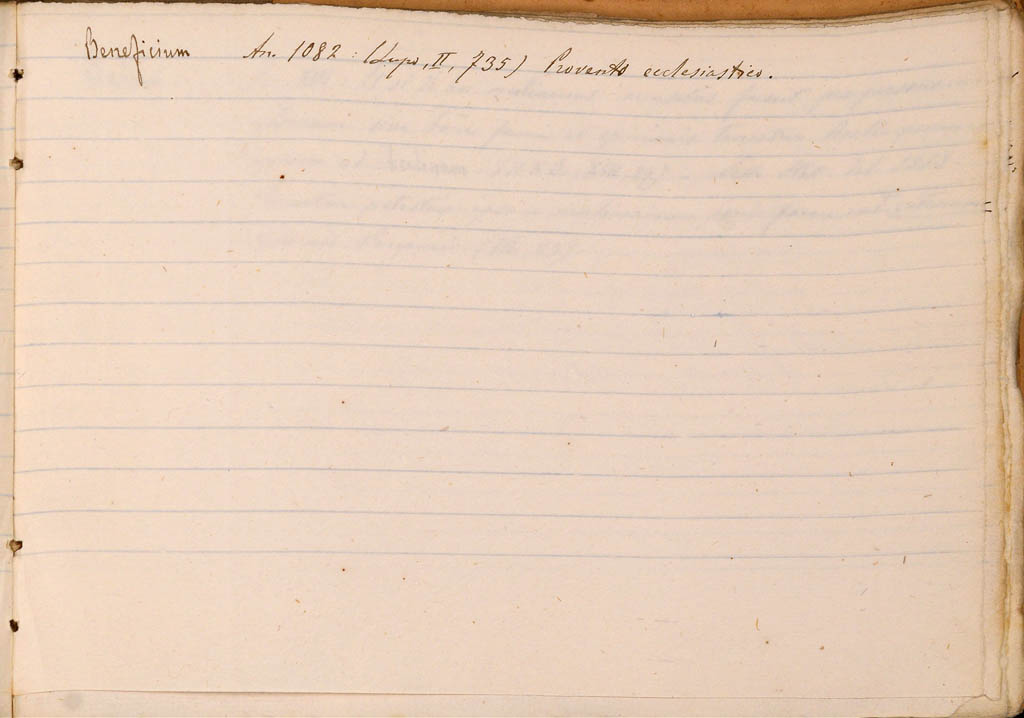 Beneficium An. 1082: (Lupo, II, 735) Provento ecclesiastico.